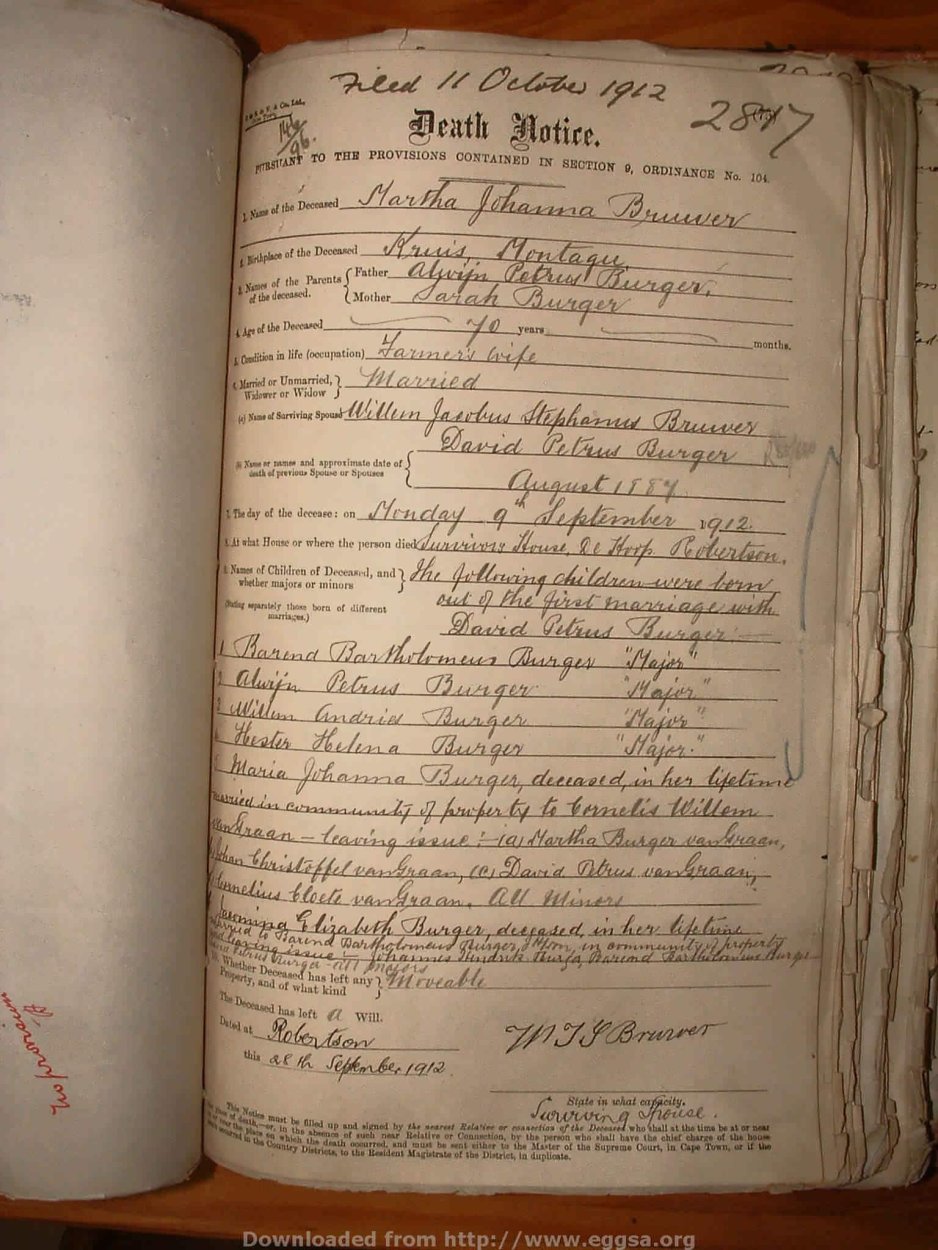 Filed 11 October 1912
146/96.
2817
Death Notice.
PURSUANT TO THE PROVISIONS CONTAINED IN SECTION 9, ORDINANCE No. 104.
1. Name of the Deceased Martha Johanna Bruwer
2. Birthplace of the Deceased Kruis, Montagu
3. Names of the Parents of the deceased. Father Alwijn Petrus Burger.
Mother Sarah Burger
4. Age of the Deceased 70 years months.
5. Condition in life (occupation) Farmer's wife
6. Married or Unmarried, Widower or Widow Married
(a) Name of Surviving Spouse Willem Jacobus Stephanus Bruwer
David Petrus Burger
(b) Name or names and approximate date of death of previous Spouse or Spouses
August 1887
7. The day of the decease: on Monday 9th September 1912.
8. At what House or where the person died House, De Hoop Robertson.
9. Names of Children of Deceased, and whether majors or minors The following children were born
(Stating separately those born of different marriages.) out of the first marriage with
David Petrus Burger:
1 Barend Bartholomeus Burger "Major"
2 Alwijn Petrus Burger "Major"
3 Willem Andries Burger "Major"
4 Hester Helena Burger "Major."
5 Maria Johanna Burger, deceased, in her lifetime
married in community of property to Cornelis Willem
van Graan – leaving issue:– (a) Martha Burger van Graan,
Johan Christoffel van Graan, (c) David Petrus van Graan,
Cornelius Cloete van Graan. All Minors
Elizabeth Burger, deceased, in her lifetime
married to Barend Bartholomeus Burger, in community of property
and leaving issue:– Johannes Hendrik Burger, Barend Bartholomeus Burger
Petrus Burger – all majors
10. Whether Deceased has left any Property, and of what kind Moveable
The Deceased has left a Will.
Dated at Robertson
W J S Bruwer
this 28th September 1912
State in what capacity.
Surviving Spouse.
This Notice must be filled up and signed by the nearest Relative or connection of the Deceased who shall at the time be at or near
the place of death,—or, in the absence of such near Relative or Connection, by the person who shall have the chief charge of the house
or of the place on which the death occurred, and must be sent either to the Master of the Supreme Court, in Cape Town, or if the
death occurred in the Country Districts, to the Resident Magistrate of the District, in duplicate.
Downloaded from http://www.eggsa.org